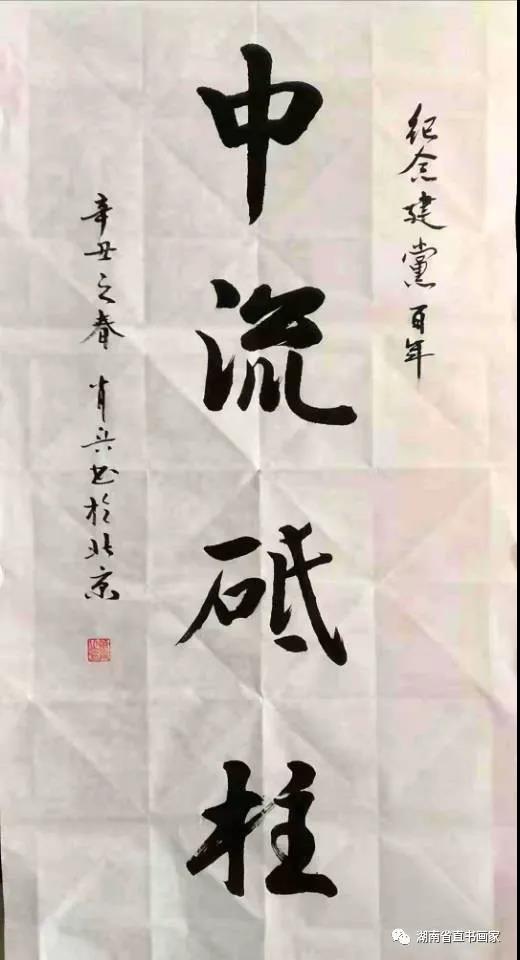 纪念建黨百年
中流砥柱
辛丑之春 肖兵书於北京
湖南省直书画家